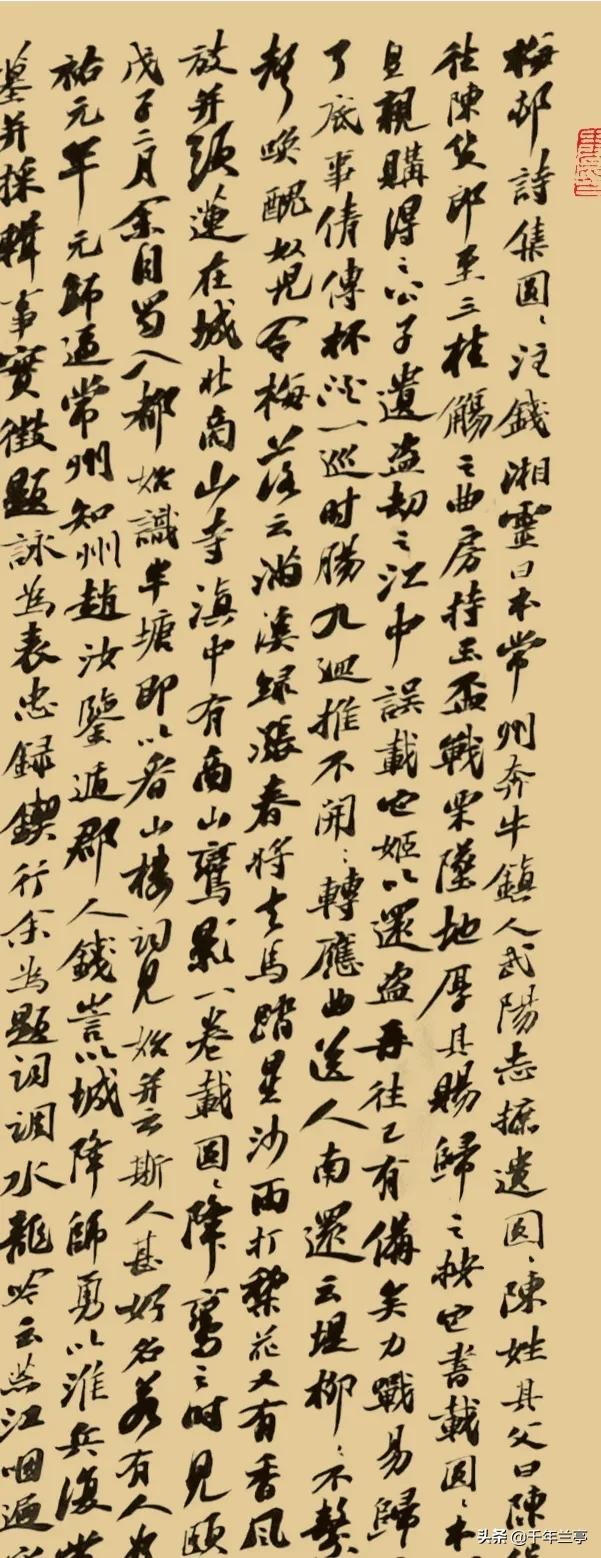 梅邨詩集圓〻注錢湘靈曰本常州奔牛鎮人武陽志摭遺圓〻陳姓其父曰陳
往陳貨郎至三桂觴之曲房持玉盃戰栗墜地厚其賜歸之按也書載圓〻本
且親購得之公子遺盜劫之江中誤載也姬以還盜再往已有備矣力戰易歸
了底事倩傳杯一巡时腸九迴推不開〻轉應曲送人南還云堤柳〻不繫
唤醜奴児令梅落云滿溪緑漲春将去馬踏星沙雨打棃花又有香風
放并頭蓮在城北商山寺滇中有商山鸞影一卷載圓〻降鸞之时見頤
戊子二月余自蜀入都始識半塘即以看山樓词見始并云斯人甚好名若有人
祐元年元師逼常州知州趙汝鑒遁郡人錢訔以城降師勇以淮兵復常
墓并採輯事實徵題詠為表忠録鍥行余為題词調水龍吟云燕江咽遍
头条 @千年兰亭